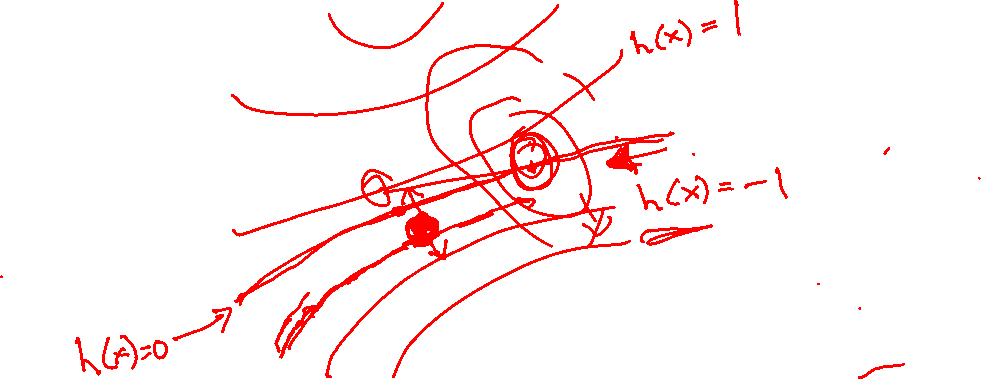 h(x) = 1
h(x) = -1
h(x)=0